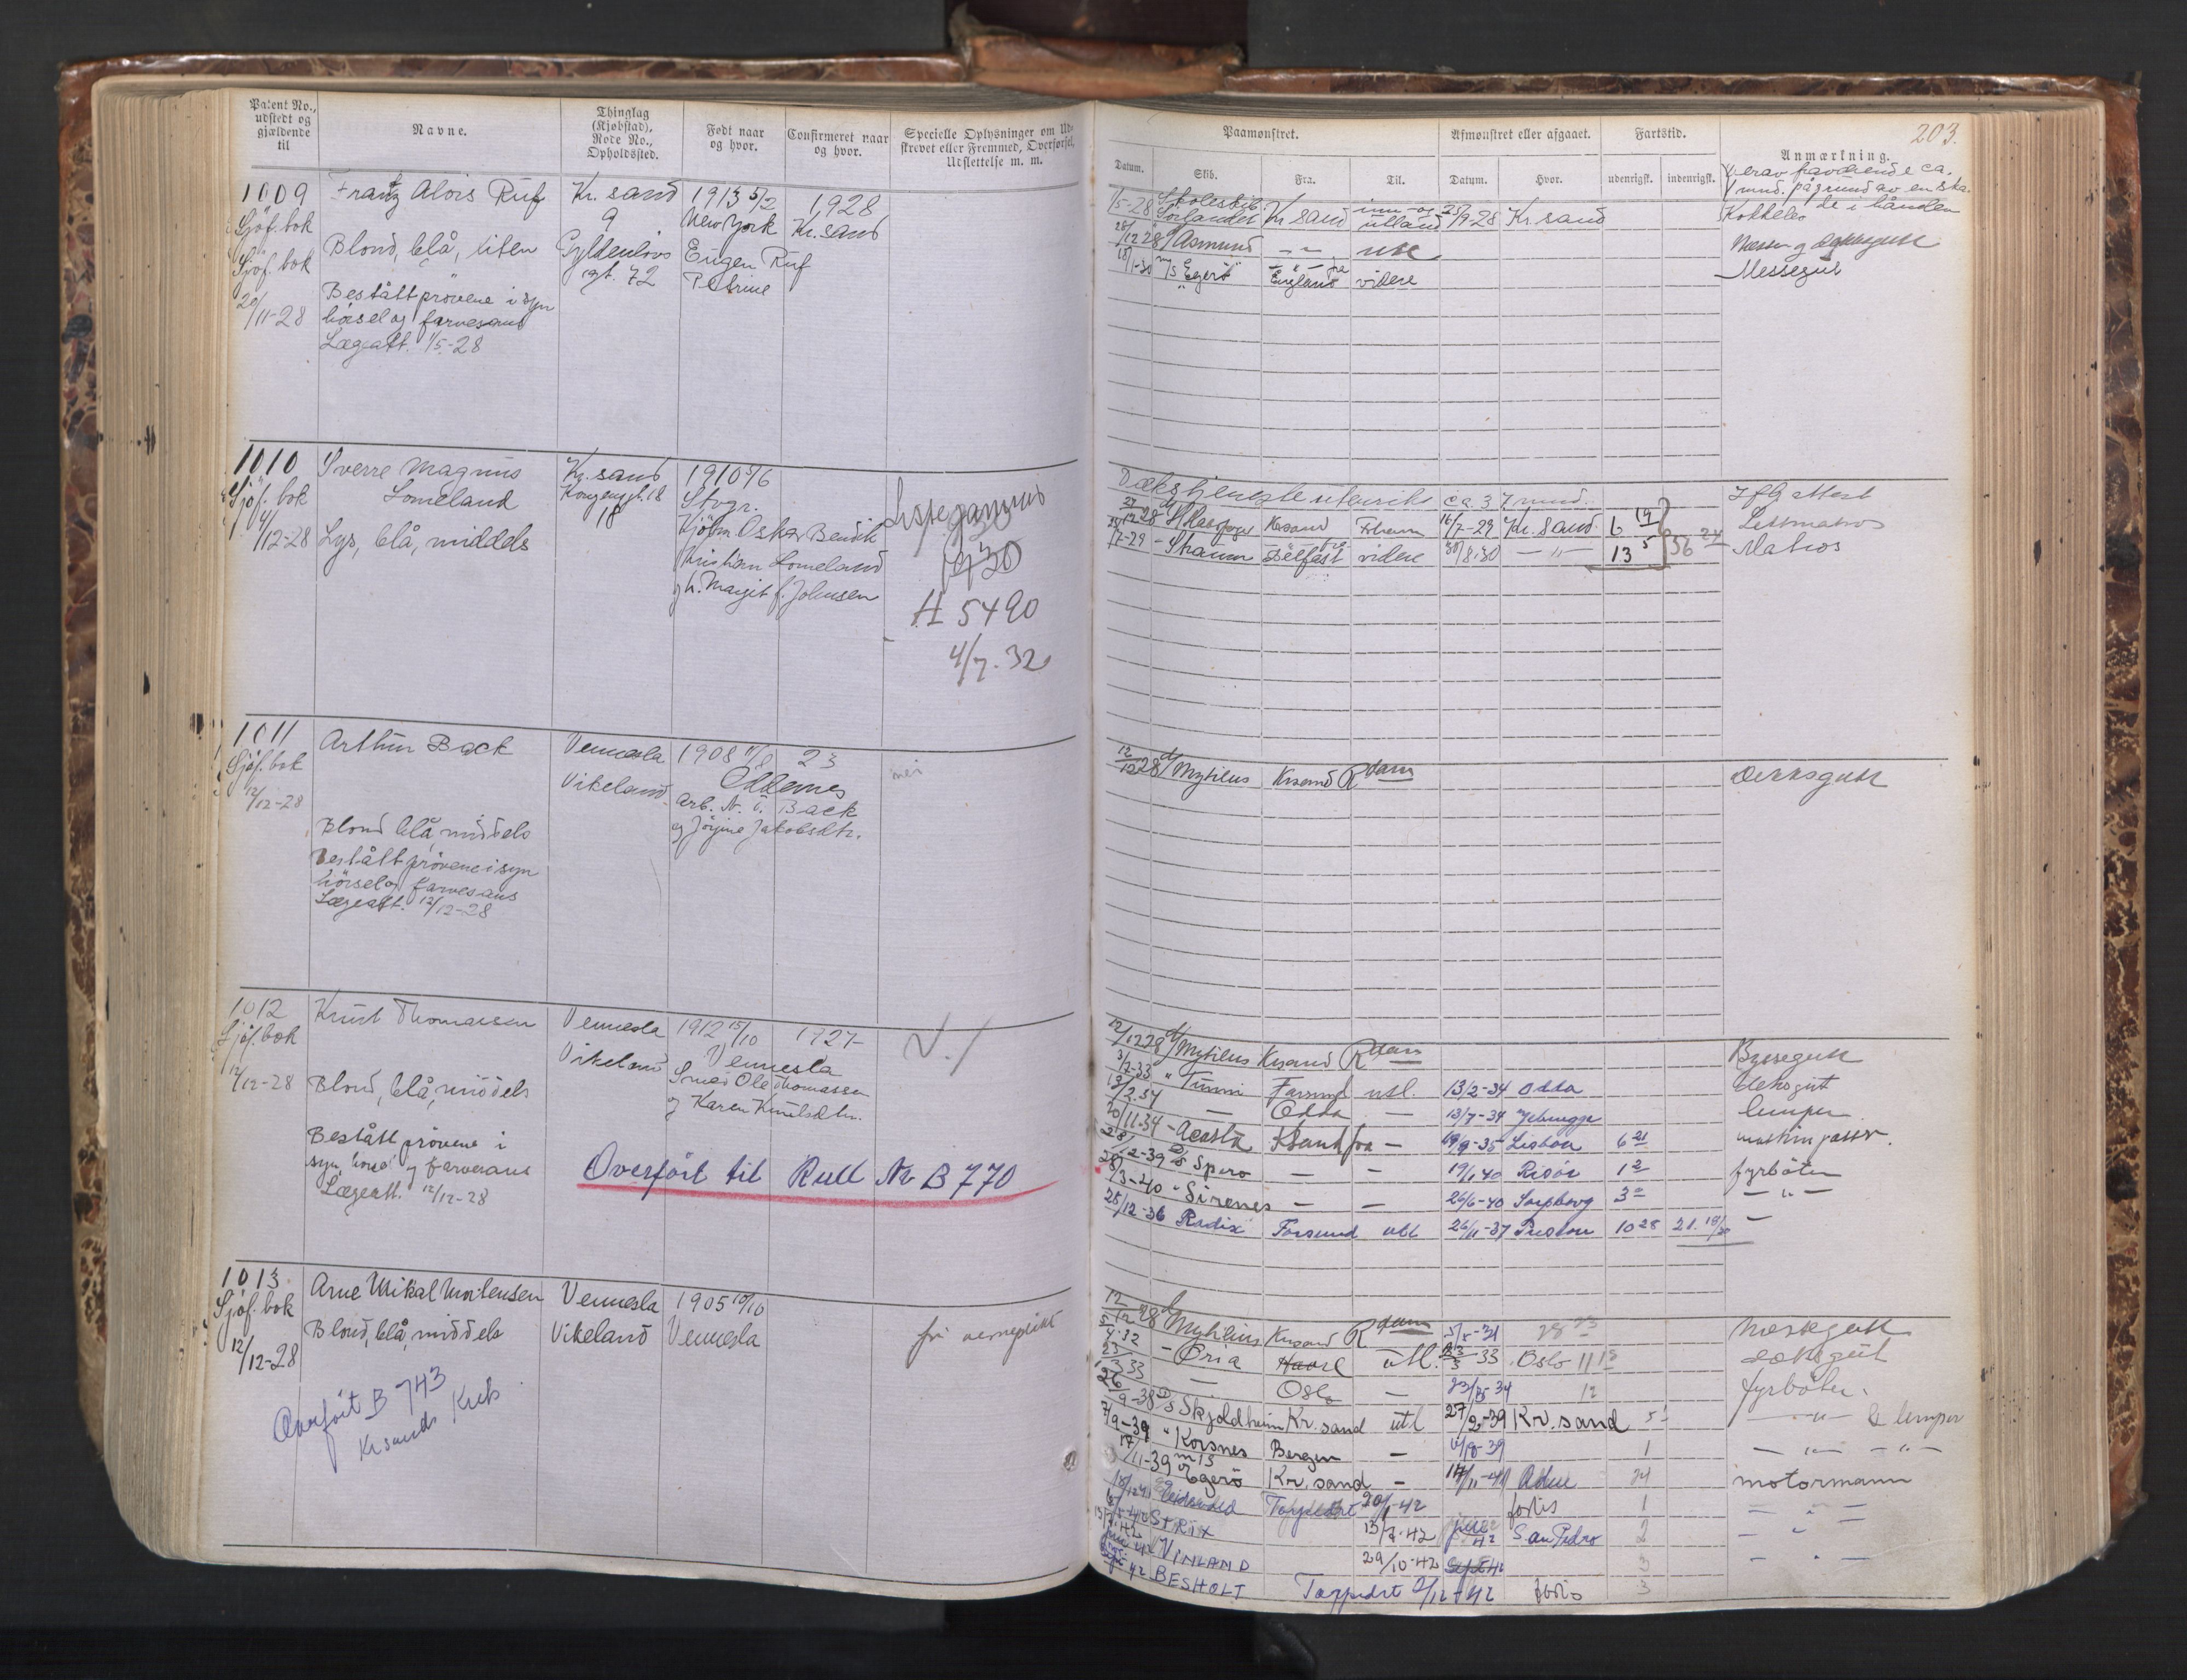 Patent No.,
udstedt og
gjældende
til
Navne.
Thinglag
(Kjøbstad),
Rode No.,
Opholdssted.
Født naar
og hvor.
Confirmeret naar
og hvor.
Specielle Oplysninger om Ud-
skrevet eller Fremmed, Overførsel,
Udslettelse m. m.
1009
Sjöf. bok
Sjöf. bok
20/11-28
Frantz Alois Ruf
Blond, blå, liten
Bestått prövene i syn
hörsel og farvesans
Lægeatt. 1/5-28
Kr. sand
9
Gyldenlövs
gt. 72
1913 5/2
New York
Eugen Ruf
Petrine
1928
Kr. sand
1010
Sjöf. bok
4/12-28
Sverre Magnus
Lomeland
Lys, blå, middels
Kr. sand
Kongensgt. 18
18
1910 5/6
Stvgr.
Kjöbm. Oskar Bendik
Kristian Lomeland
og h. Margit f. Johnsen
1930
H 5490
4/7. 32
1011
Sjöf. bok
12/12-28
Arthur Back
Blond blå middels
Bestått prövene i syn
hörsel og farvesans
Lægeatt. 12/12-28
Vennesla
Vikeland
1908 11/9
23
Oddernes
Arb. N. T. Back
og Jörgine Jakobsdtr.
nei
1012
Sjöf. bok
12/12-28
Knut Thomassen
Blond, blå, middels
Bestått prövene i
syn, hörsel og farvesans
Lægeatt. 12/12-28
Vennesla
Vikeland
1912 15/10
1927
Vennesla
Smed Ole Thomassen
og Karen Knutsdtr.
Overfört til Rull Nr B 770
1013
Sjöf. bok
12/12-28
Arne Mikal Mortensen
Blond, blå, middels
Vennesla
Vikeland
1905 10/10
Vennesla
fri verneplikt
Overfört B 743
Krsands Krets
203.
Paamønstret.
Afmønstret eller afgaaet.
Fartstid.
Anmærkning.
Datum.
Skib.
Fra.
Til.
Datum.
Hvor.
udenrigsk.
indenrigsk.
Herav fraværende ca.
1 mnd. på grund av en ska-
de i hånden
1/5-28 Skoleskib.
Sørlandet Kr sand inn- og
utland 25/9-28 Kr. sand Kokkelev
28/12 28 d/ Asmund -"- utl Messe og dæksgutt
18/1-30 m/s "Egerö" -"- fra
England videre Messegut
Dækstjeneste utenriks ca. 37 mnd. Ifg attest
Krsand 16/7-29 Kr. Sand 6 19 Lettmatros
7-29 - Straum Belfast videre 30/8.30 -"- 13 5 56 24 Matros
12/12 28 d/ Mytilus Krsand Rdam Dekksgutt
12/12 28 d/ Mytilus Krsand Rdam Byssegutt
3/7-33 " Tunni Farsund utl. 13/2-34 Odda deksgut
13/2.34 — Odda — 13/7-34 lemper
20/11.34 - Acasta Krsand fra — 19/9-35 Lisboa 6 21 maskinpasser.
28/12-39 D/S Spero — — 19/1 40 Risör 1 2 fyrböter
28/3-40 " Sirenes — — 26/6-40 Sarpsborg 3 — " —
25/12-36 Radix Farsund utl 26/11-37 Preston 10 28 21. 18/30 —
12/12 28 d/ Mytilus Krsand Rdam 5/5-31 Messegutt
4.32 - Oria Havre utl. 23/3 33 Oslo 11 18 dæksgut
23/3 33 — Oslo — 23/35 34 12 fyrböter.
26/9-38 D/S Skjoldheim Kr. sand utl 27/2-39 Kr. sand 5 — " — & lemper
7/9-39 " Korsnes Bergen — 1 — " — — " —
17/11-39 m/s Egerö Kr. sand — 14/11-41 24 motormann
Torpedert 20/1-42 forlis 1 — " —
STRIX 13/7.42 June 42 San Pedro 2 — " —
VINLAND 29/10-42 Sept 42 3 — " —
BESHOLT Torpedert 2/12-42 forlis 3